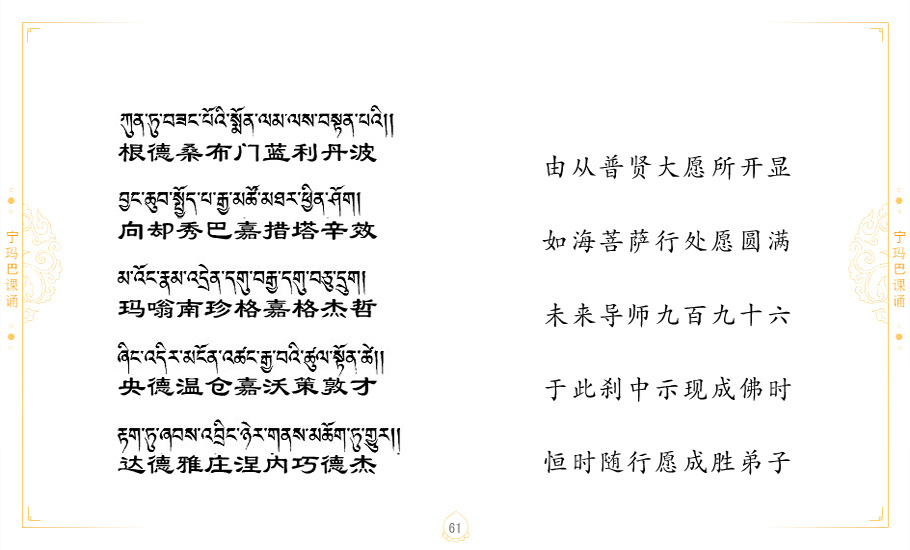 ཀུན་ཏུ་བཟང་པོའི་སྨོན་ལམ་ལས་བསྟན་པའི།།
根德桑布门蓝利丹波
བྱང་ཆུབ་སྤྱོད་པ་རྒྱ་མཚོ་མཐར་ཕྱིན་ཤོག།
向却秀巴嘉措塔辛效
མ་འོང་རྣམ་འདྲེན་དགུ་བརྒྱ་དགུ་བཅུ་དྲུག།
玛嗡南珍格嘉格杰哲
ཞིང་འདིར་མངོན་འཚང་རྒྱ་བའི་ཚུལ་སྟོན་ཚེ།།
央德温仓嘉沃策敦才
རྟག་ཏུ་ཞབས་འབྲིང་ཉེར་གནས་མཆོག་ཏུ་གྱུར།།
达德雅庄涅内巧德杰
由从普贤大愿所开显
如海菩萨行处愿圆满
未来导师九百九十六
于此刹中示现成佛时
恒时随行愿成胜弟子
宁玛巴课诵
宁玛巴课诵
61